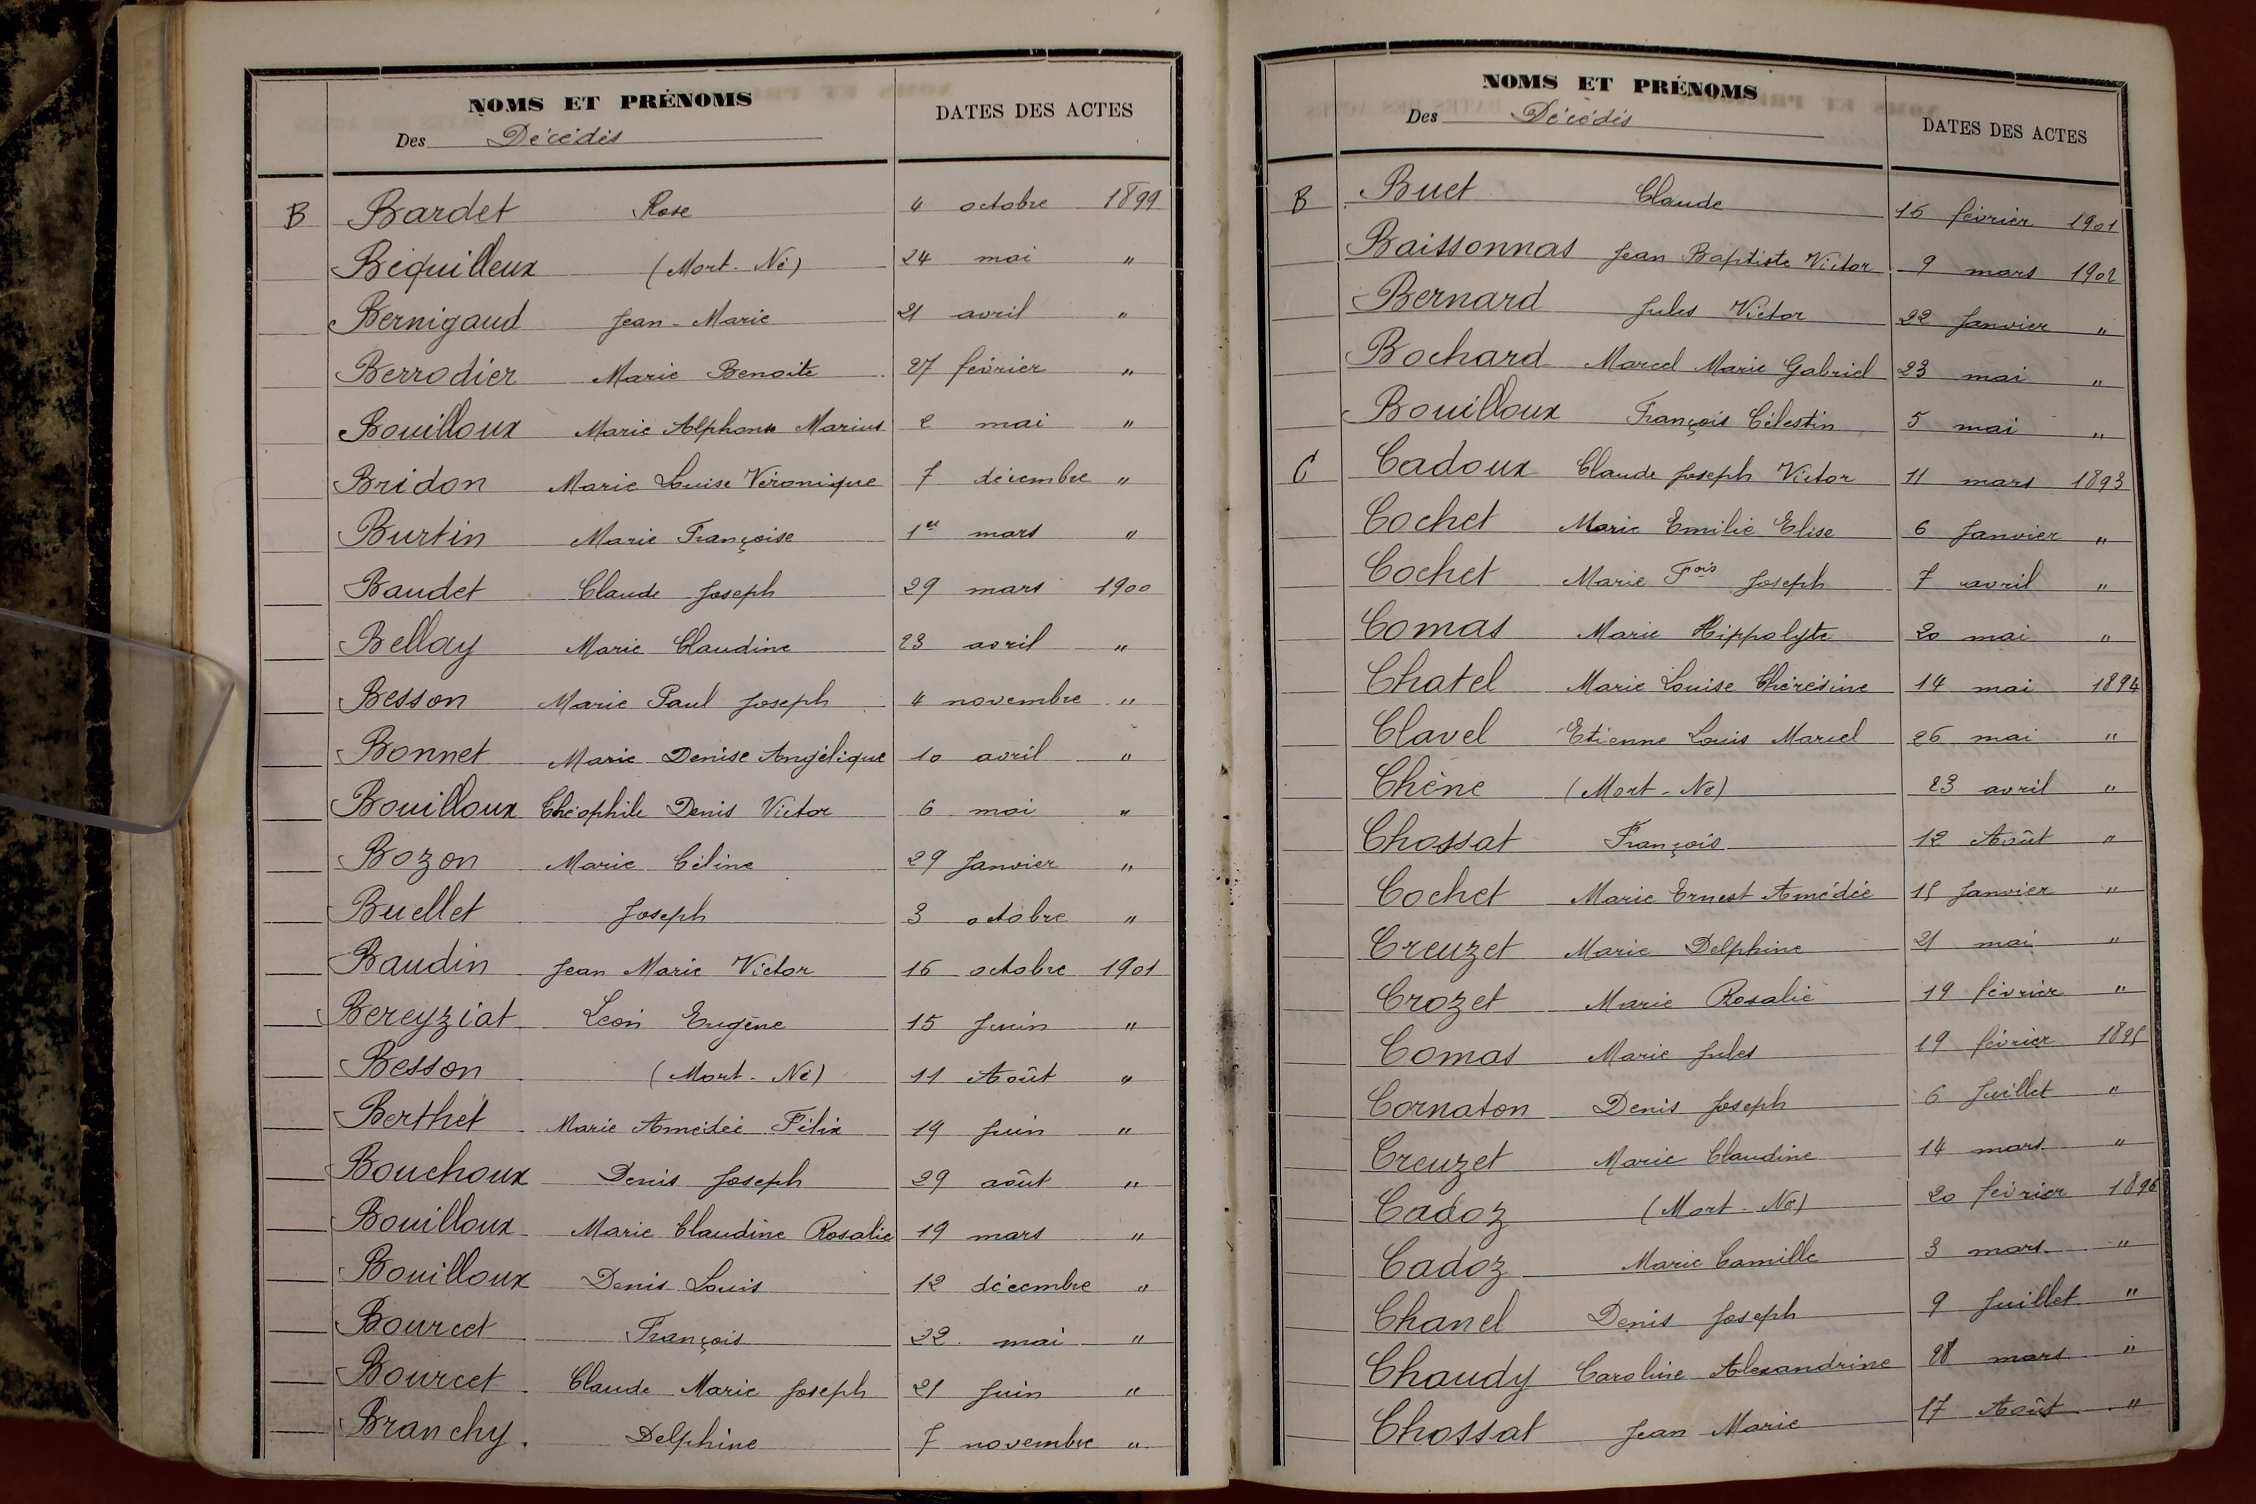 NOMS ET PRÉNOMS
Des Décédés
DATES DES ACTES
B Bardet Rose 4 octobre 1899
Béquilleux (Mort-Né) 24 mai "
Bernigaud Jean-Marie 21 avril "
Berrodier Marie Benoite 27 février "
Bouilloux Marie Alphonse Marius 2 mai "
Bridon Marie Louise Véronique 7 décembre "
Burtin Marie Françoise 1er mars "
Baudet Claude Joseph 29 mars 1900
Bellay Marie Claudine 23 avril "
Besson Marie Paul Joseph 4 novembre "
Bonnet Marie Denise Angélique 10 avril "
Bouilloux Théophile Denis Victor 6 mai "
Bozon Marie Céline 29 Janvier "
Buellet Joseph 3 octobre "
Baudin Jean Marie Victor 16 octobre 1901
Bereyziat Léon Eugène 15 Juin "
Besson (Mort-Né) 11 Août "
Berthet Marie Amédée Félix 19 Juin "
Bouchoux Denis Joseph 29 août "
Bouilloux Marie Claudine Rosalie 19 mars "
Bouilloux Denis Louis 12 décembre "
Bourcet François 22 mai "
Bourcet Claude Marie Joseph 21 Juin "
Branchy Delphine 7 novembre "
NOMS ET PRÉNOMS
Des Décédés
DATES DES ACTES
B Buet Claude 16 février 1901
Baissonnas Jean Baptiste Victor 9 mars 1902
Bernard Jules Victor 22 Janvier "
Bochard Marcel Marie Gabriel 23 mai "
Bouilloux François Célestin 5 mai "
C Cadoux Claude Joseph Victor 11 mars 1893
Cochet Marie Emilie Elise 6 Janvier "
Cochet Marie Fois Joseph 7 avril "
Comas Marie Hippolyte 20 mai "
Chatel Marie Louise Thérésine 14 mai 1894
Clavel Etienne Louis Marcel 26 mai "
Chêne (Mort-Né) 23 avril "
Chossat François 12 Août "
Cochet Marie Ernest Amédée 15 Janvier "
Creuzet Marie Delphine 21 mai "
Crozet Marie Rosalie 19 février "
Comas Marie Jules 19 février 1895
Cornaton Denis Joseph 6 Juillet "
Creuzet Marie Claudine 14 mars "
Cadoz (Mort-Né) 20 février 1896
Cadoz Marie Camille 3 mars "
Chanel Denis Joseph 9 Juillet "
Chaudy Caroline Alexandrine 28 mars "
Chossat Jean Marie 17 Août "